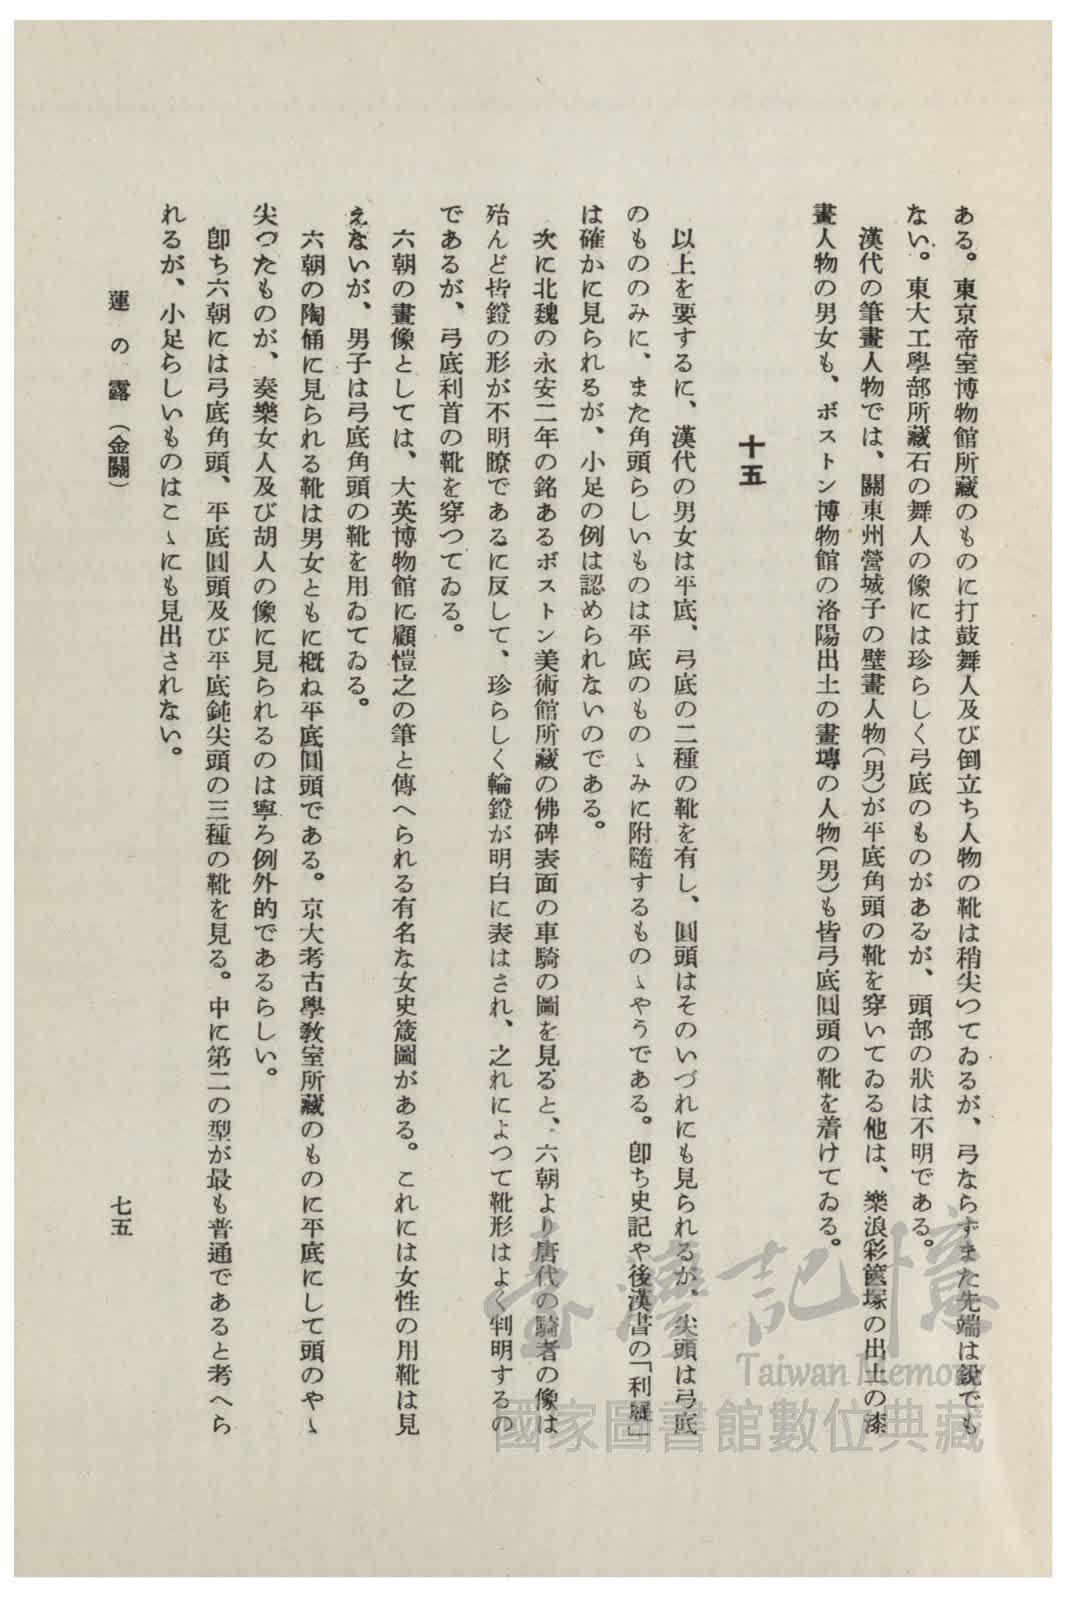 ある。東京帝室博物館所藏のものに打鼓舞人及び倒立ち人物の靴は稍尖つてゐるが、弓ならずまた先端は銳でも
ない。東大工學部所藏石の舞人の像には珍らしく弓底のものがあるが、頭部の狀は不明である。
漢代の筆畫人物では、關東州營城子の壁畫人物（男）が平底角頭の靴を穿いてゐる他は、樂浪彩篋塚の出土の漆
畫人物の男女も、ボストン博物館の洛陽出土の畫塼の人物（男）も皆弓底圓頭の靴を着けてゐる。
十五
以上を要するに、漢代の男女は平底、弓底の二種の靴を有し、圓頭はそのいづれにも見られるが、尖頭は弓底
のもののみに、また角頭らしいものは平底のものゝみに附隨するものゝやうである。卽ち史記や後漢書の「利屣」
は確かに見られるが、小足の例は認められないのである。
次に北魏の永安二年の銘あるボストン美術館所藏の佛碑表面の車騎の圖を見ると、六朝より唐代の騎者の像は
殆んど皆鐙の形が不明瞭であるに反して、珍らしく輪鐙が明白に表はされ、之れによつて靴形はよく判明するの
であるが、弓底利首の靴を穿つてゐる。
六朝の畫像としては、大英博物館に顧愷之の筆と傳へられる有名な女史箴圖がある。これには女性の用靴は見
えないが、男子は弓底角頭の靴を用ゐてゐる。
六朝の陶俑に見られる靴は男女ともに槪ね平底圓頭である。京大考古學教室所藏のものに平底にして頭のやゝ
尖つたものが、奏樂女人及び胡人の像に見られるのは寧ろ例外的であるらしい。
卽ち六朝には弓底角頭、平底圓頭及び平底鈍尖頭の三種の靴を見る。中に第二の型が最も普通であると考へら
れるが、小足らしいものはこゝにも見出されない。
蓮の露（金關）
七五
臺灣記憶
Taiwan Memory
國家圖書館數位典藏